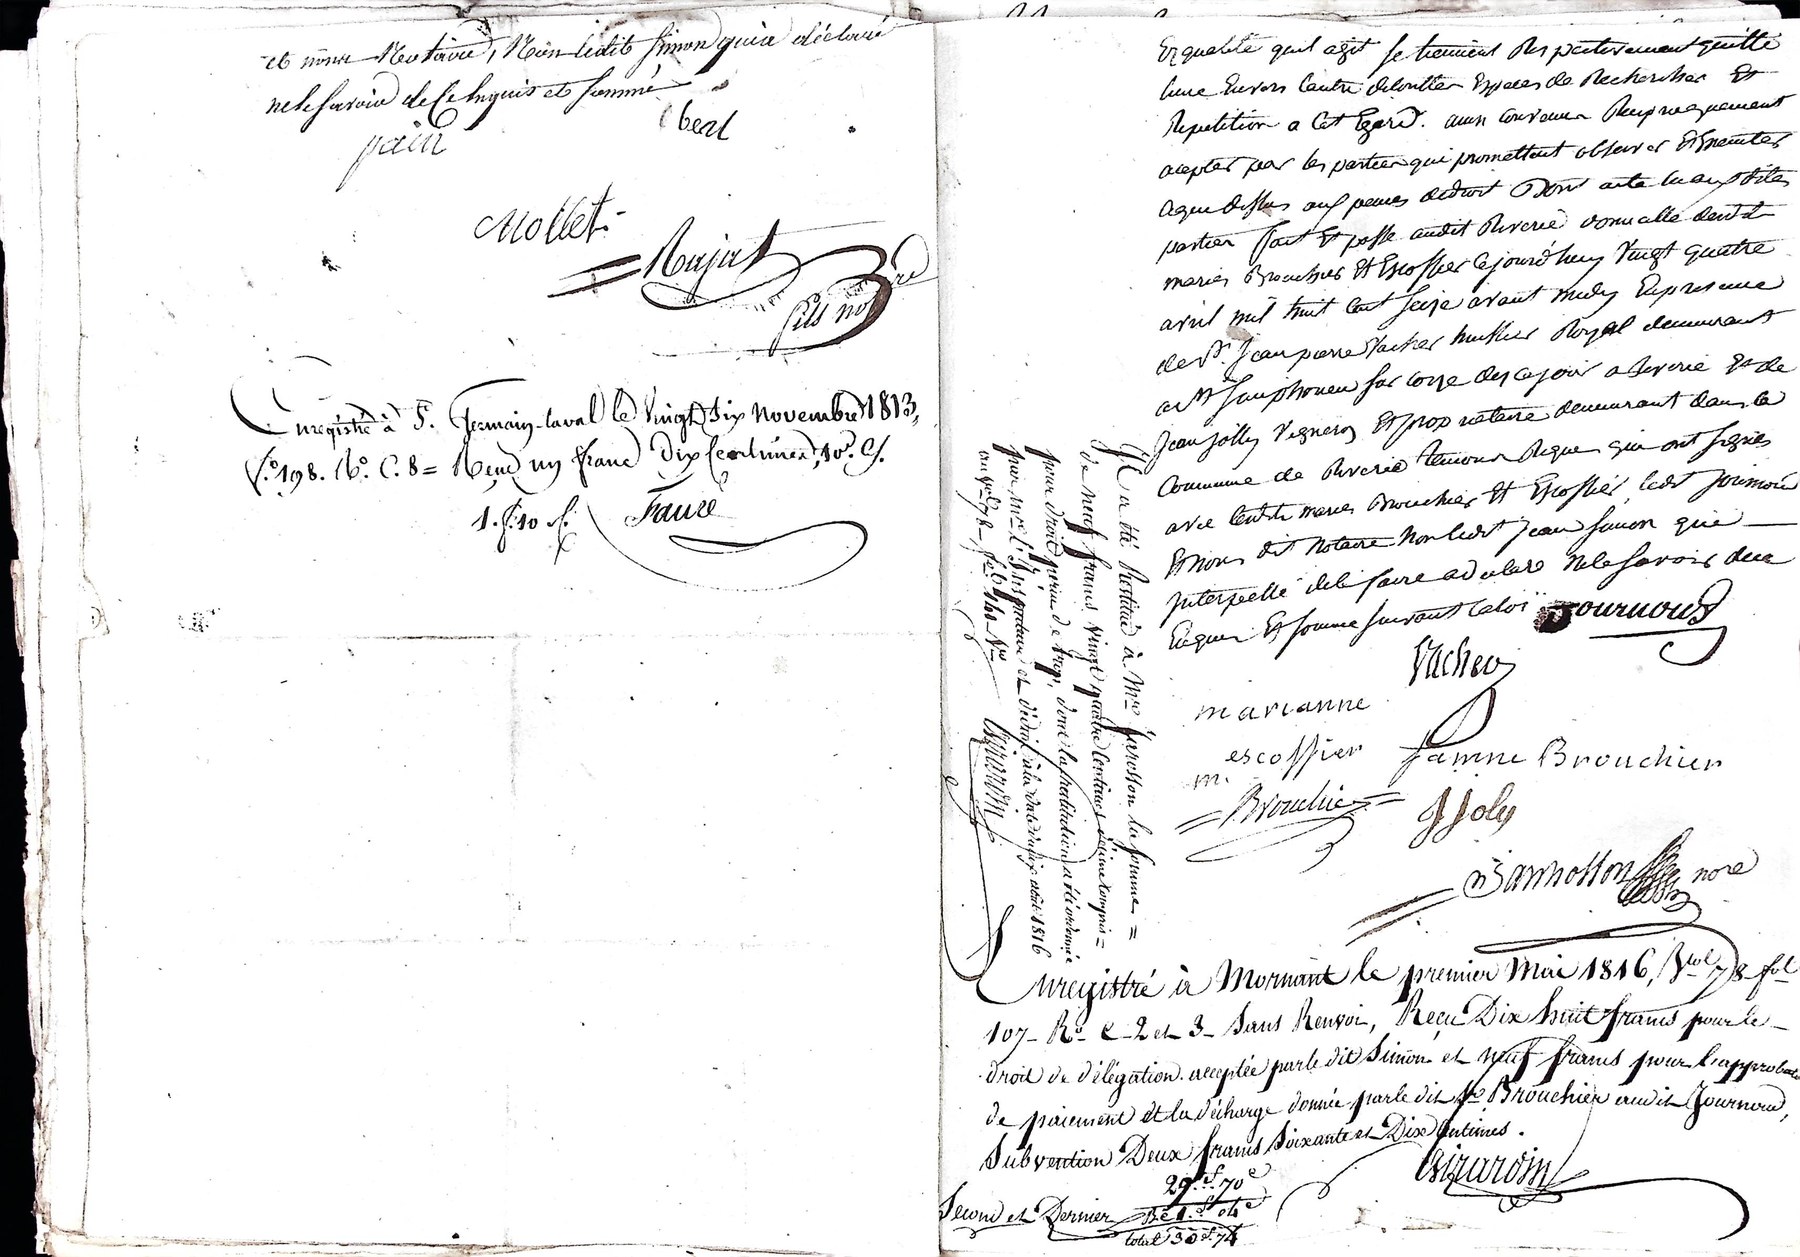 et nous Notaire, Non ledit Simon qui a déclaré
ne le savoir de ce enquis et sommé
obert
pain
Mollet
Rajat
fils nore
Enregistré à St. Germain-laval le Vingt Six novembre 1813,
fo. 198. Ro. C. 8 = Reçu un franc Dix Centimes, 10e. C/.
1. f. 10 c.
Faure
En qualité quil agit se tiennent Respectivement quitte
lune Envers lautre de touttes Especes de Recherches Et
Repetition a Cet Egard. ainsi convenu Reciproquement
accepter par les parties qui promettent observer Et Executer
ce que dessus aux peines de droit Dont acte lu aux dites
parties fait Et passé audit Riverie domicille desdits
maries Brouchier Et Escoffier ce jourd'huy Vingt quatre
avril mil huit Cent Seize avant midy En presence
de Sr. Jean pierre Vacher huissier Royal demeurant
a St Simphorien sur coize de ce jour a Riverie Et de
Jean Jolly Vigneron Et proprietaire demeurant dans la
Commune de Riverie temoins Requis qui ont signés
avec lesdits maries Brouchier Et Escoffier, ledit Journoud
Et Nous dit Notaire Non ledit Jean Simon qui
interpellé de le faire a declaré ne le savoir de ce
Enquis Et sommé suivant la loi
Journoud
Vacher
marianne
escoffier
famme Brouchier
m.
Brouchier
J Joly
Jarrosson nore
Il a été Restitué à Mre Jarosson la somme =
de neuf francs Vingt quatre Centimes décime compris =
pour droit perçu de trop, dont la Restitution a été ordonnée
par Mr. l'Inspecteur et d'Enf à la date du six août 1816
au vol 78, fo. 140 Vo
Girardin
Enregistré à Mornant le premier Mai 1816, Vol 78 fol
107 Ro C 2 et 3 Sans Renvoi, Reçu Dix huit francs pour le
droit de délégation acceptée par le dit Simon et neuf francs pour l'approbat
de paiement et la décharge donnée par le dit Sr Brouchier audit Journoud,
Subvention Deux francs Soixante et Dix Centimes.
Girardin
29f. 70c
Second et Dernier Re 1f 04c
total 30f 74